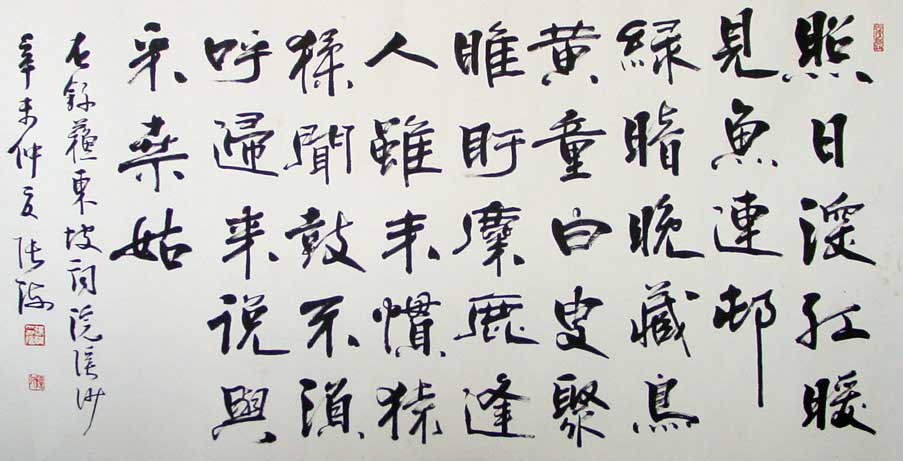 照日深紅暖
見魚連邨
緑暗晚藏烏
黄童白叟聚
睢盱麋鹿逢
人雖未慣猿
猱聞鼓不須
呼歸来説與
采桑姑
右録蘇東坡詞浣溪沙
辛未仲夏張海